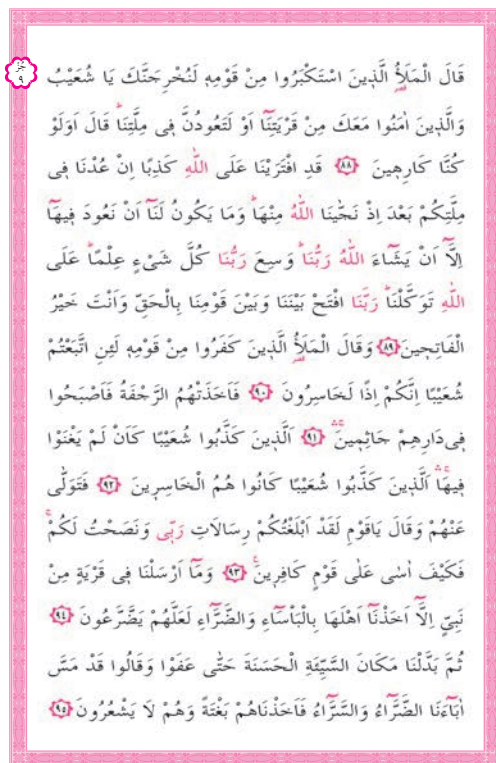 جزء
٩
قَالَ الْمَلَأُ الَّذِينَ اسْتَكْبَرُوا مِنْ قَوْمِهِ لَنُخْرِجَنَّكَ يَا شُعَيْبُ
وَالَّذِينَ اٰمَنُوا مَعَكَ مِنْ قَرْيَتِنَٓا اَوْ لَتَعُودُنَّ فِى مِلَّتِنَاۜ قَالَ اَوَلَوْ
كُنَّا كَارِهِينَ ﴿٨٨﴾ قَدِ افْتَرَيْنَا عَلَى اللّٰهِ كَذِبًا اِنْ عُدْنَا فِى
مِلَّتِكُمْ بَعْدَ اِذْ نَجّٰينَا اللّٰهُ مِنْهَاۜ وَمَا يَكُونُ لَنَٓا اَنْ نَعُودَ فِيهَٓا
اِلَّٓا اَنْ يَشَٓاءَ اللّٰهُ رَبُّنَاۜ وَسِعَ رَبُّنَا كُلَّ شَىْءٍ عِلْمًاۜ عَلَى
اللّٰهِ تَوَكَّلْنَاۜ رَبَّنَا افْتَحْ بَيْنَنَا وَبَيْنَ قَوْمِنَا بِالْحَقِّ وَاَنْتَ خَيْرُ
الْفَاتِحِينَ ﴿٨٩﴾ وَقَالَ الْمَلَأُ الَّذِينَ كَفَرُوا مِنْ قَوْمِهِ لَئِنِ اتَّبَعْتُمْ
شُعَيْبًا اِنَّكُمْ اِذًا لَخَاسِرُونَ ﴿٩٠﴾ فَاَخَذَتْهُمُ الرَّجْفَةُ فَاَصْبَحُوا
فِى دَارِهِمْ جَاثِمِينَۚۛ ﴿٩١﴾ اَلَّذِينَ كَذَّبُوا شُعَيْبًا كَاَنْ لَمْ يَغْنَوْا
فِيهَاۚۛ اَلَّذِينَ كَذَّبُوا شُعَيْبًا كَانُوا هُمُ الْخَاسِرِينَ ﴿٩٢﴾ فَتَوَلّٰى
عَنْهُمْ وَقَالَ يَاقَوْمِ لَقَدْ اَبْلَغْتُكُمْ رِسَالَاتِ رَبِّى وَنَصَحْتُ لَكُمْۚ
فَكَيْفَ اٰسٰى عَلٰى قَوْمٍ كَافِرِينَ۟ ﴿٩٣﴾ وَمَٓا اَرْسَلْنَا فِى قَرْيَةٍ مِنْ
نَبِىٍّ اِلَّٓا اَخَذْنَٓا اَهْلَهَا بِالْبَأْسَٓاءِ وَالضَّرَّٓاءِ لَعَلَّهُمْ يَضَّرَّعُونَ ﴿٩٤﴾
ثُمَّ بَدَّلْنَا مَكَانَ السَّيِّئَةِ الْحَسَنَةَ حَتّٰى عَفَوْا وَقَالُوا قَدْ مَسَّ
اٰبَٓاءَنَا الضَّرَّٓاءُ وَالسَّرَّٓاءُ فَاَخَذْنَاهُمْ بَغْتَةً وَهُمْ لَا يَشْعُرُونَ ﴿٩٥﴾